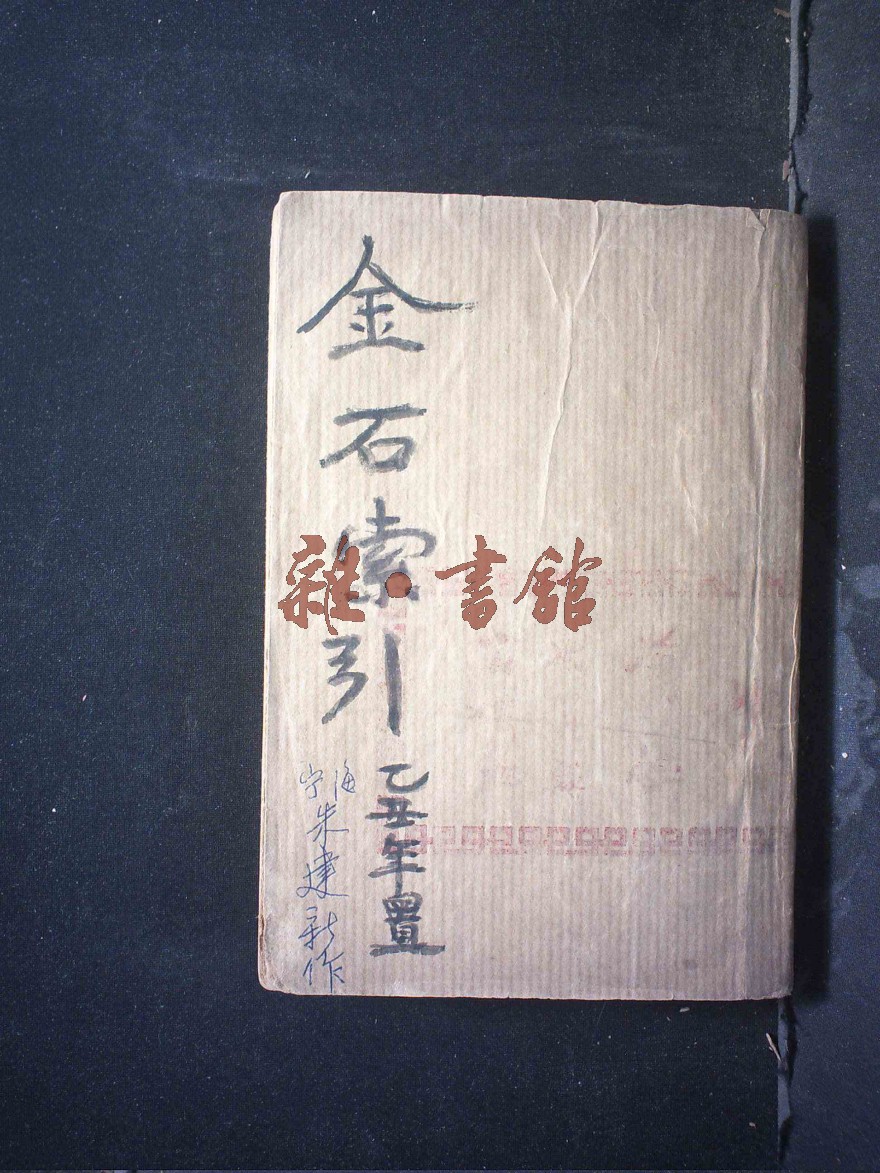 金石索引
乙丑年置
海宁
朱建新作
雜·書館